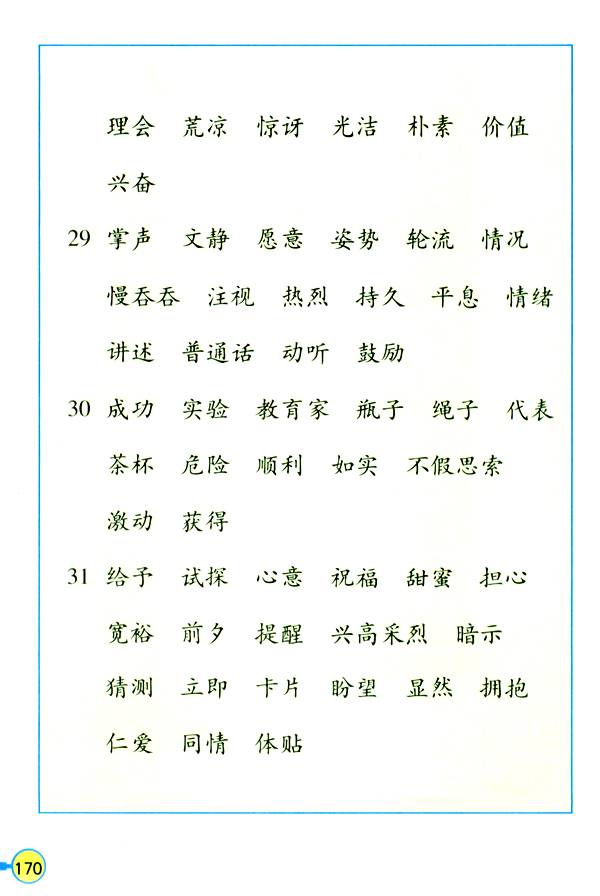 理会 荒凉 惊讶 光洁 朴素 价值
兴奋
29 掌声 文静 愿意 姿势 轮流 情况
慢吞吞 注视 热烈 持久 平息 情绪
讲述 普通话 动听 鼓励
30 成功 实验 教育家 瓶子 绳子 代表
茶杯 危险 顺利 如实 不假思索
激动 获得
31 给予 试探 心意 祝福 甜蜜 担心
宽裕 前夕 提醒 兴高采烈 暗示
猜测 立即 卡片 盼望 显然 拥抱
仁爱 同情 体贴
170